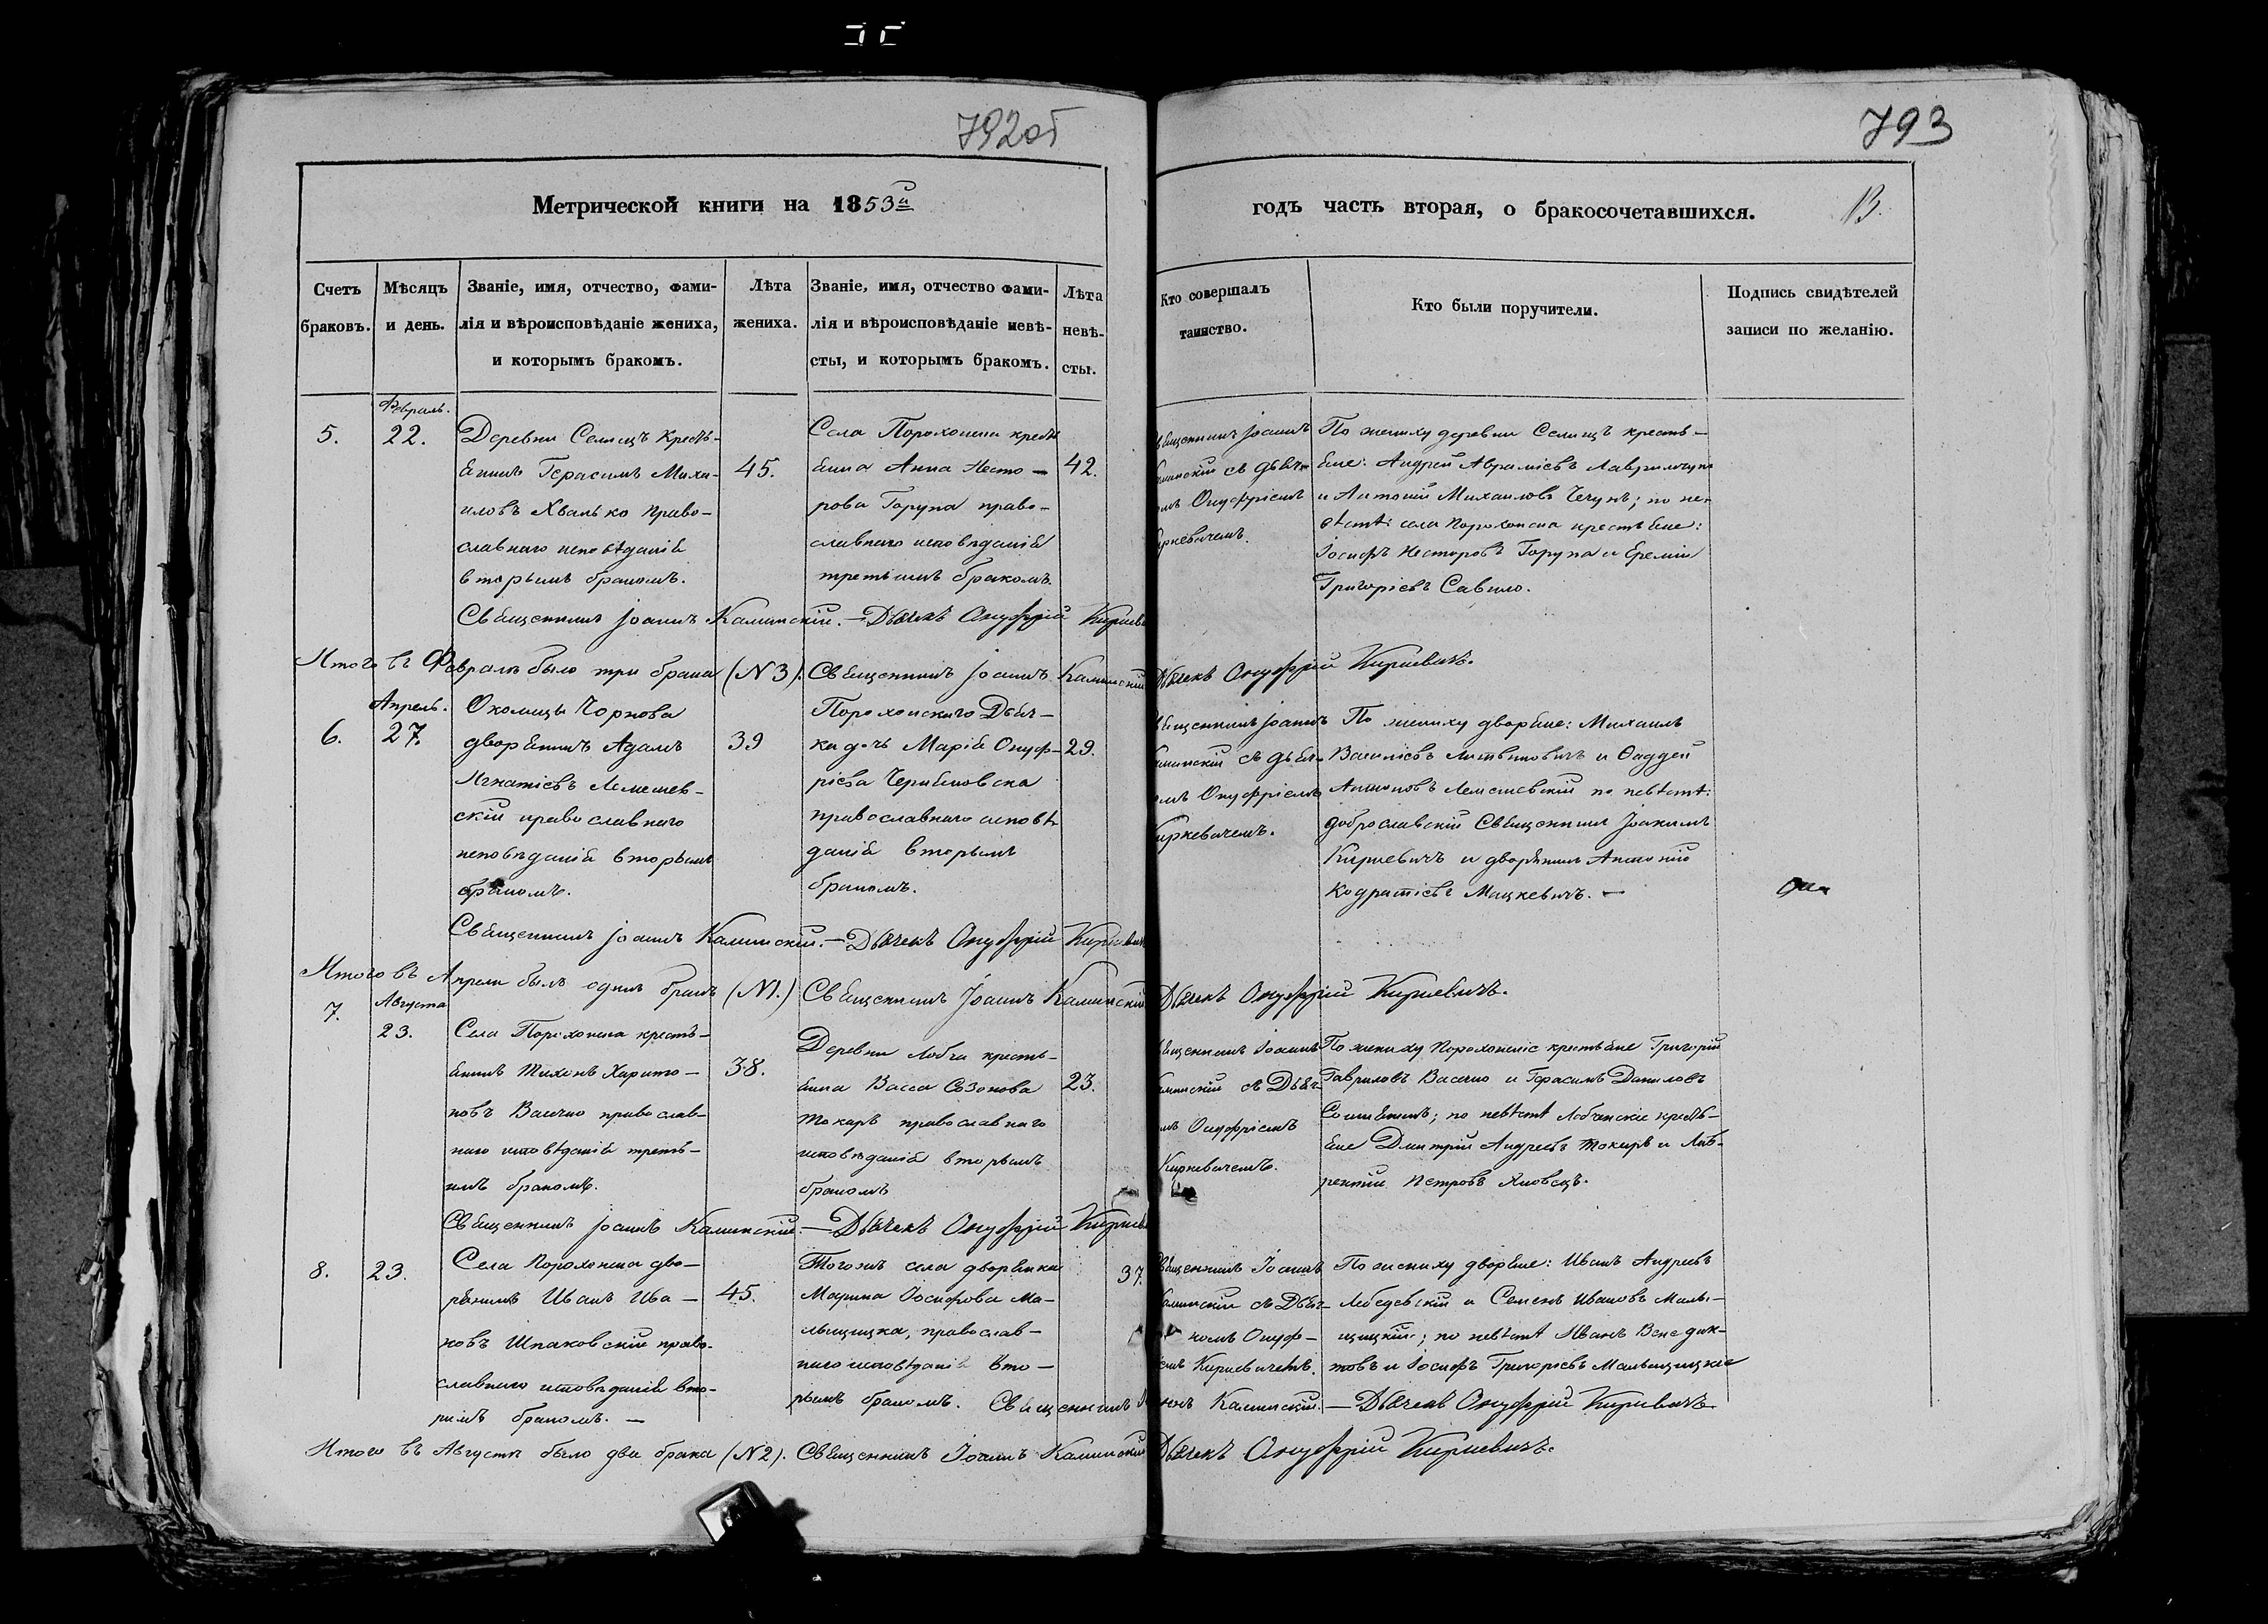 792об
793
Метрической книги на 1853й
годъ часть вторая, о бракосочетавшихся.
13.
Счетъ браковъ.
Мѣсяцъ и день.
Званіе, имя, отчество, фами-
лія и вѣроисповѣданіе жениха,
и которымъ бракомъ.
Лѣта
жениха.
Званіе, имя, отчество фами-
лія и вѣроисповѣданіе невѣ-
сты, и которымъ бракомъ.
Лѣта
невѣ-
сты.
Кто совершалъ
таинство.
Кто были поручители.
Подпись свидѣтелей
записи по желанію.
Февраль.
5.
22.
Деревни Селищъ кресть-
янинъ Герасимъ Миха-
иловъ Хвалько право-
славнаго исповѣданія
вторымъ бракомъ.
45.
Села Порохонска кресть
янка Анна Несто-
рова Горупа право-
славнаго исповѣданія
третьимъ бракомъ.
42.
Священникъ Іоаннъ
Каминскій съ дьяч-
комъ Онуфріемъ
Киркевичемъ.
По жениху деревни Селищъ кресть-
яне: Андрей Авраміевъ
и Антоній Михаиловъ Чечунъ; по не-
вѣстѣ села Порохонска крестьяне:
Іосифъ Несторовъ Горупа и Еремія
Григоріевъ Савило.
Священникъ Іоаннъ Каминскій. — Дьячекъ Онуфрій Киркеви
Итого въ Февралѣ было три брака (№3). Священникъ Іоаннъ Каминскій Дьячекъ Онуфрій Киркевичъ.
Апрель.
6.
27.
Околицы Чорнова
дворянинъ Адамъ
Игнатіевъ Лемешев-
скій православнаго
исповѣданія вторымъ
бракомъ.
39
Порохонскаго Дьяч-
ка дочь Марія Онуф-
ріева
православнаго исповѣ
данія вторымъ
бракомъ.
29.
Священникъ Іоаннъ
Каминскій съ дьяч-
комъ Онуфріемъ
Киркевичемъ.
По жениху дворяне: Михаилъ
Василіевъ Литвиновичъ и Фаддей
Антоновъ Лемешевскій по невѣстѣ:
доброславскій Священникъ Іоакимъ
Киркевичъ и дворянинъ Антоній
Кодратіевъ Мацкевичъ. —
Священникъ Іоаннъ Каминскій. — Дьячекъ Онуфрій Киркевич
Итого въ Апрели былъ одинъ бракъ (№1.) Священникъ Іоаннъ Каминскій Дьячекъ Онуфрій Киркевичъ.
Августа
7.
23.
Села Порохонска кресть-
янинъ Тихонъ Харито-
новъ Васечко православ-
наго исповѣданія треть-
имъ бракомъ.
38.
Деревни Лобчи кресть-
янка Васса Созонова
Токарь православнаго
исповѣданія вторымъ
бракомъ
23.
Священникъ Іоаннъ
Каминскій съ Дьяч-
комъ Онуфріемъ
Киркевичемъ.
По жениху Порохонскіе крестьяне Григорій
Гавриловъ Васечко и Герасимъ Даниловъ
по невѣстѣ Лобчанскіе кресть-
яне Дмитрій Андреевъ Токарь и Лав-
рентій Петровъ
Священникъ Іоаннъ Каминскій. — Дьячекъ Онуфрій Киркев
8.
23.
Села Порохонска дво-
рянинъ Иванъ Ива-
новъ Шпаковскій право-
славнаго исповѣданія вто-
римъ бракомъ. —
45.
Тогожъ села дворянка
Марина Іосифова Ма-
льщицка, православ-
наго исповѣданія вто-
рымъ бракомъ.
37.
Священникъ Іоаннъ
Каминскій съ Дьяч-
комъ Онуф-
ріемъ Киркевичемъ.
По жениху дворяне: Иванъ Андреевъ
Лебедевскій и Семенъ Ивановъ Маль-
щицкій; по невѣстѣ Иванъ Венедик-
товъ и Іосифъ Григоріевъ Мальщицкіе
Священникъ Іоаннъ Каминскій. — Дьячекъ Онуфрій Киркевичъ
Итого въ Августѣ было два брака (№2). Священникъ Іоаннъ Каминскій Дьячекъ Онуфрій Киркевичъ.